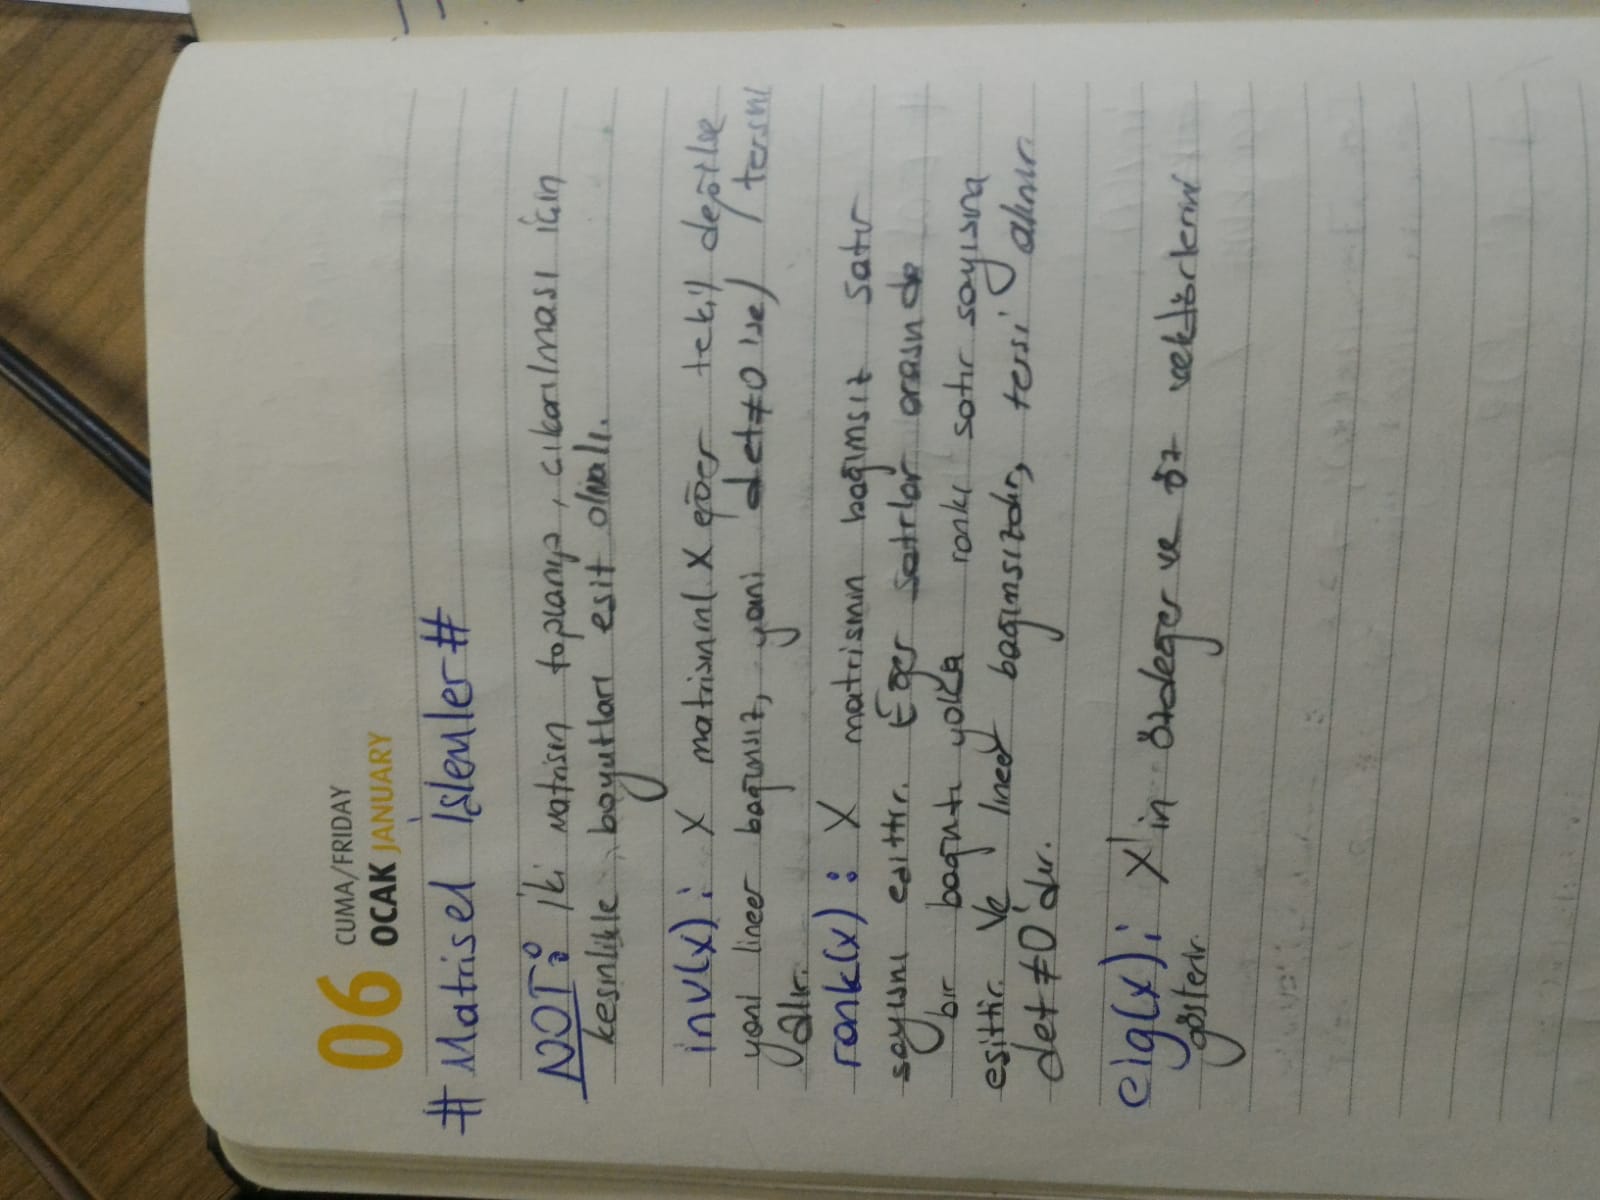 06
CUMA/FRIDAY
OCAK JANUARY
# Matrisel İşlemler #
NOT: İki matrisin toplanıp, çıkarılması için
kesinlikle boyutları eşit olmalı.
inv(x): X matrisinin( X eğer tekil değilse
yani lineer bağımsız, yani det≠0 ise) tersini
alır.
rank(x): X matrisinin bağımsız satır
sayısını eşittir. Eğer satırlar arasında
bir bağıntı yoksa rankı satır sayısına
eşittir. Ve lineer bağımsızdır, tersi alınır.
det≠0'dır.
eig(x): X'in özdeğer ve öz vektörlerini
gösterir.